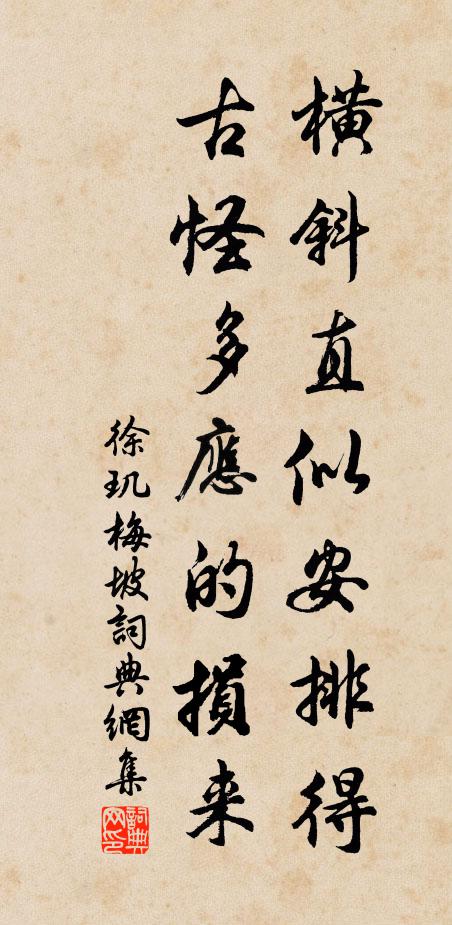 橫斜直似安排得
古怪多應的損来
徐玑梅坡詞典網集
詞典网印